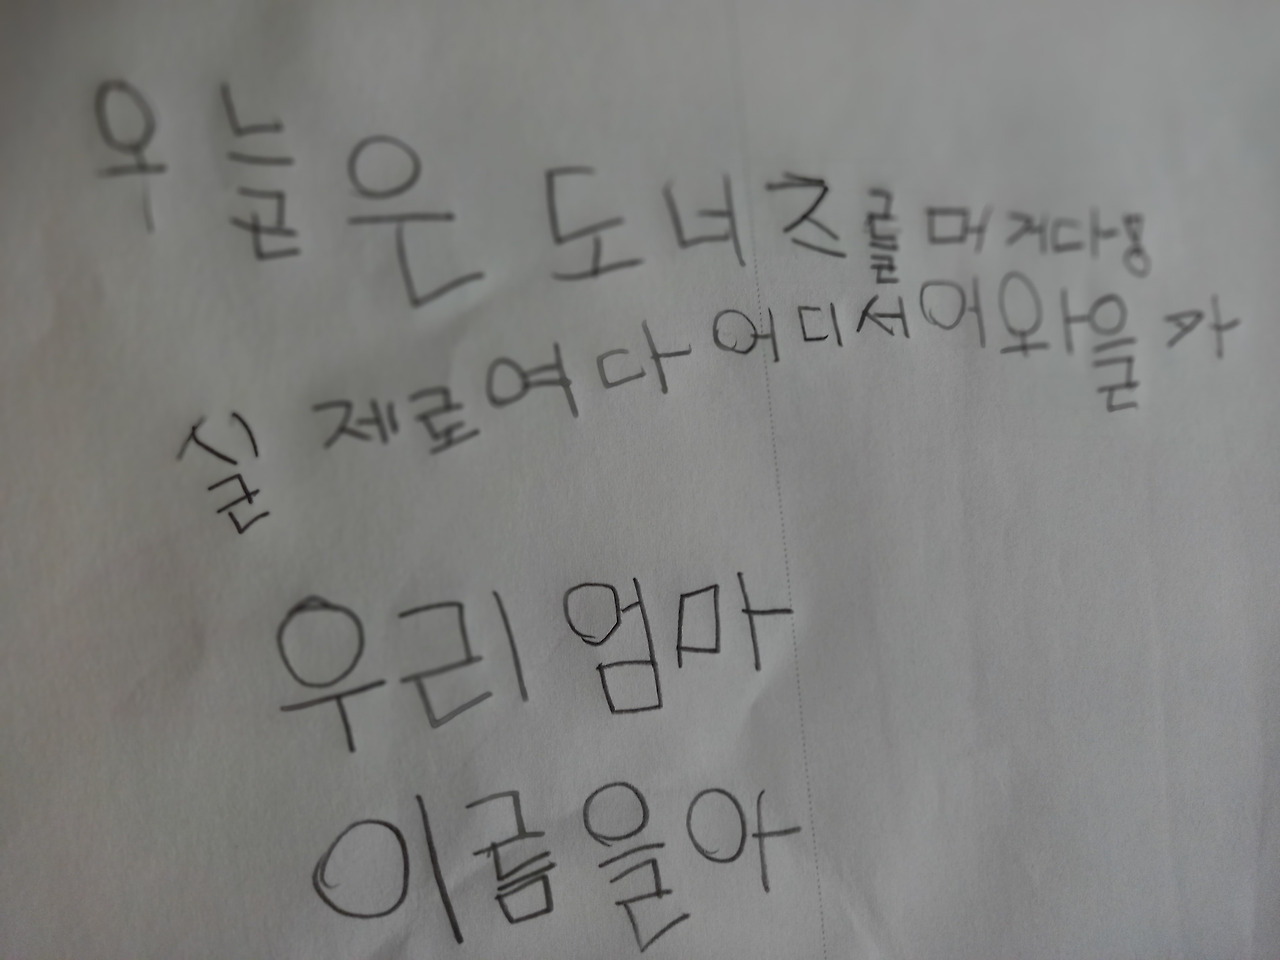 오늘은 도너즈를 머거다용
실제로여다 어디서어와을사
우리 엄마
이름을아